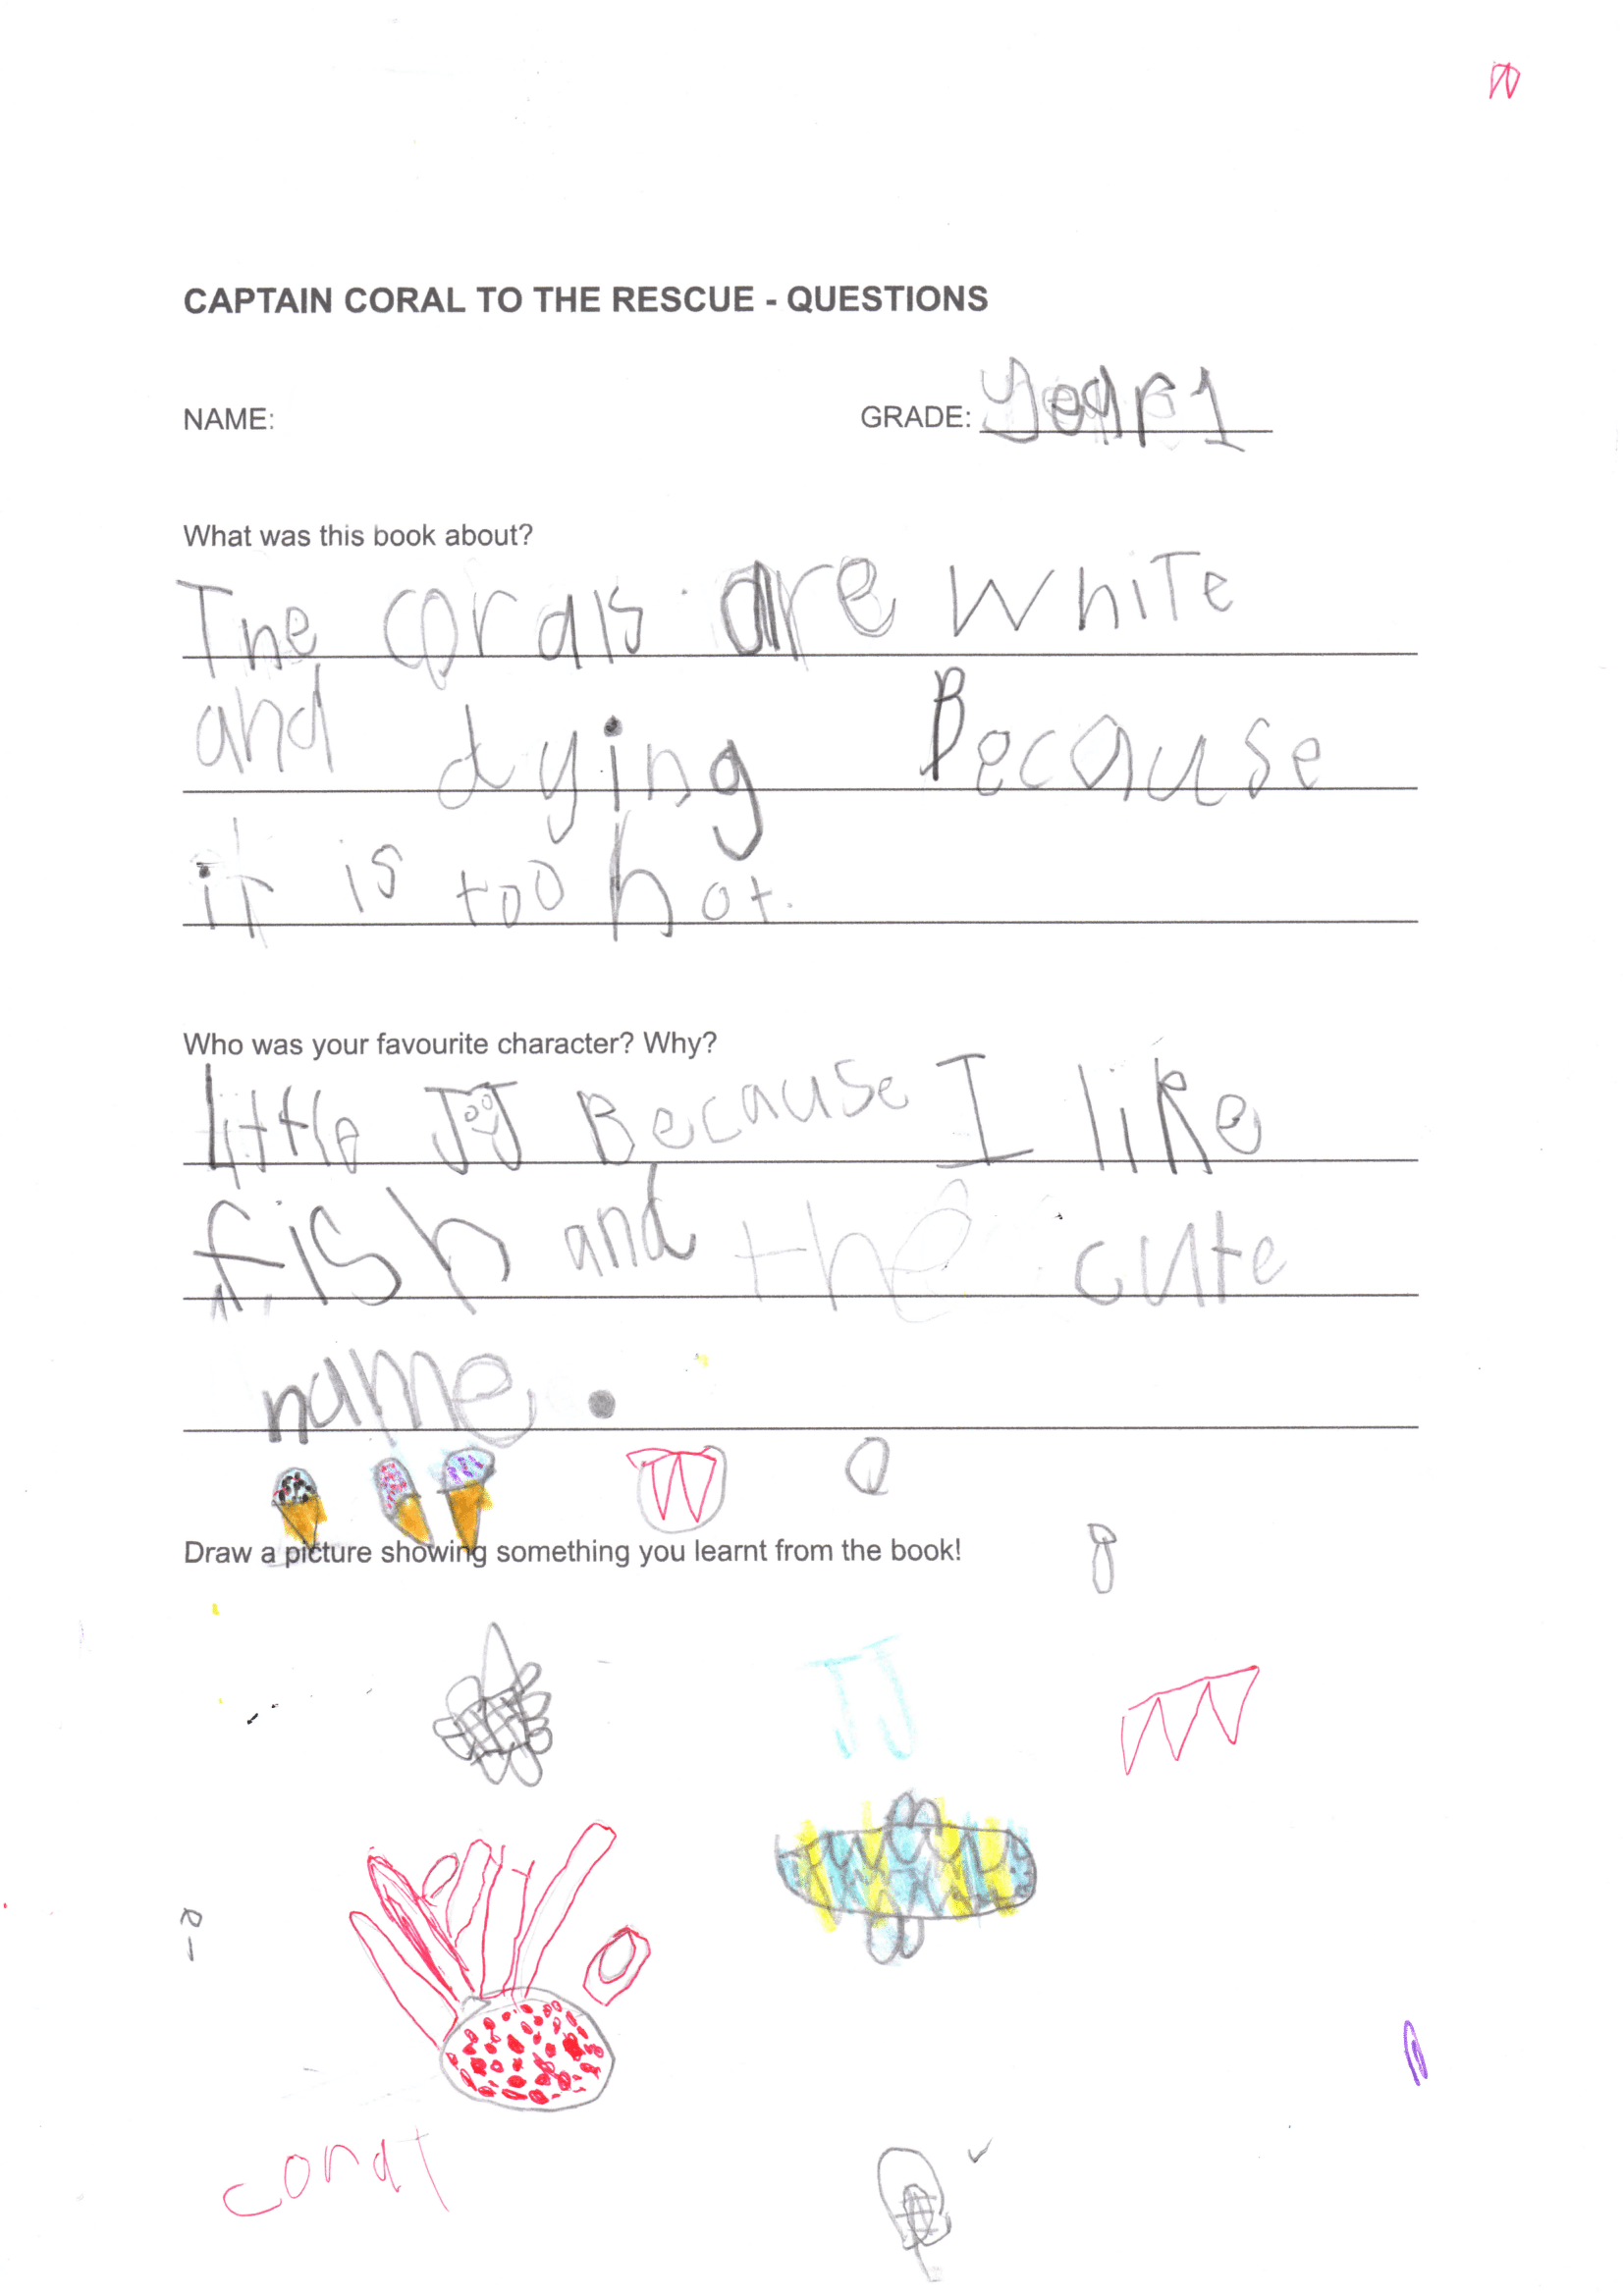 CAPTAIN CORAL TO THE RESCUE - QUESTIONS
NAME: GRADE: Year 1
What was this book about?
The corals are white
and dying Because
it is too hot.
Who was your favourite character? Why?
Little JJ Because I like
fish and the cute
name.
Draw a picture showing something you learnt from the book!
JJ
coral